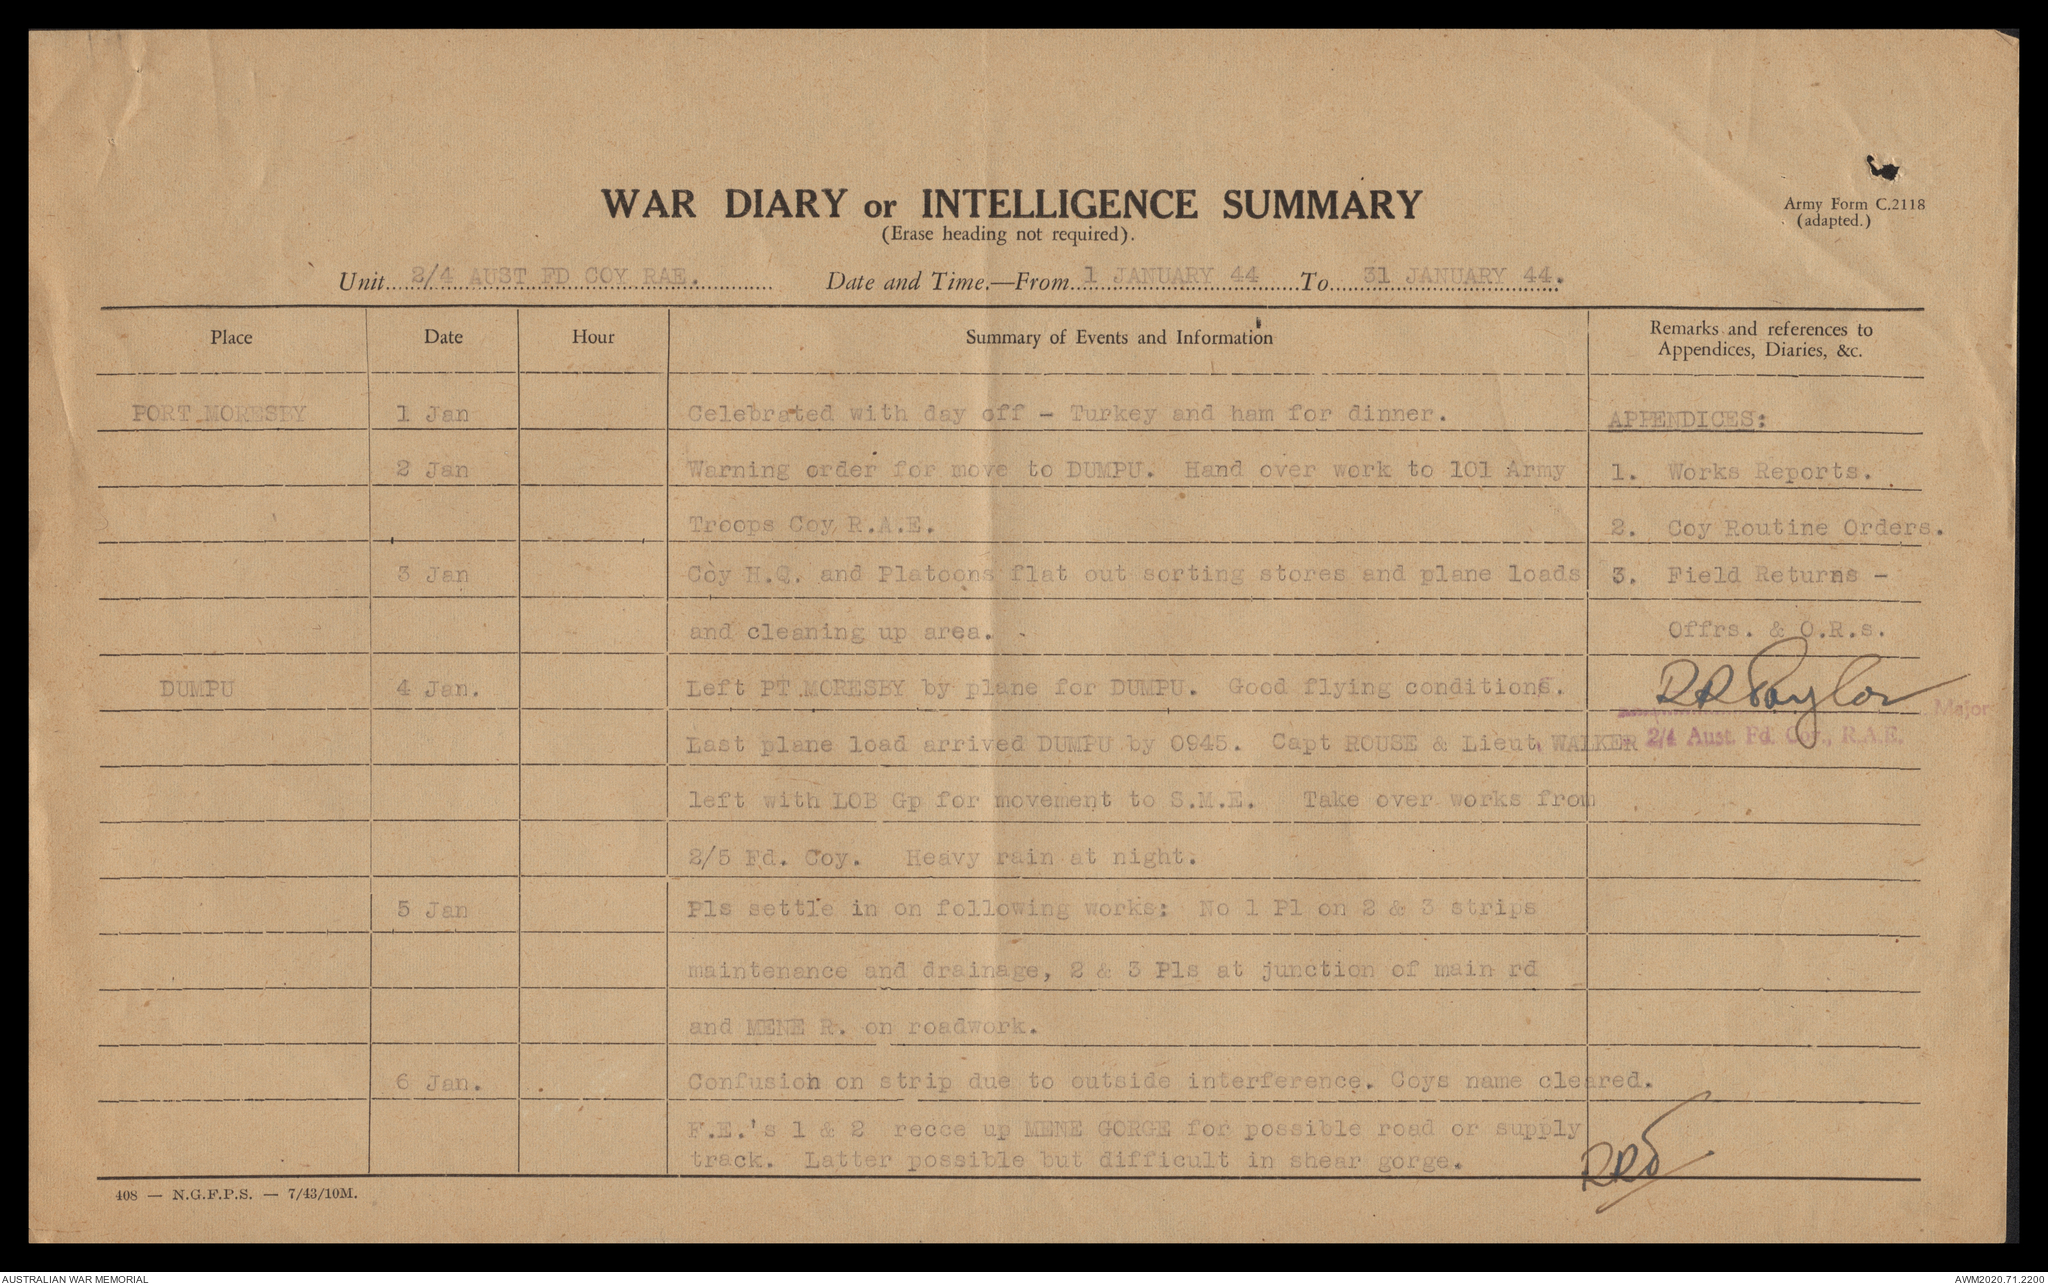 WAR DIARY or INTELLIGENCE SUMMARY
(Erase heading not required).
Army Form C.2118
(adapted.)
Unit 2/4 AUST FD COY RAE. Date and Time.—From 1 JANUARY 44 To 31 JANUARY 44.
Place Date Hour Summary of Events and Information Remarks and references to
Appendices, Diaries, &c.
PORT MORESBY 1 Jan Celebrated with day off - Turkey and ham for dinner. APPENDICES:
2 Jan Warning order for move to DUMPU. Hand over work to 101 Army 1. Works Reports.
Troops Coy R.A.E. 2. Coy Routine Orders.
3 Jan Coy H.Q. and Platoons flat out sorting stores and plane loads 3. Field Returns -
and cleaning up area. Offrs. & O.R.s.
DUMPU 4 Jan. Left PT MORESBY by plane for DUMPU. Good flying conditions. RRTaylor
Major
Last plane load arrived DUMPU by 0945. Capt ROUSE & Lieut WALKER 2/4 Aust. Fd. Coy., R.A.E.
left with LOB Gp for movement to S.M.E. Take over works from
2/5 Fd. Coy. Heavy rain at night.
5 Jan Pls settle in on following works: No 1 Pl on 2 & 3 strips
maintenance and drainage, 2 & 3 Pls at junction of main rd
and MENE R. on roadwork.
6 Jan. Confusion on strip due to outside interference. Coys name cleared.
F.E.'s 1 & 2 recce up MENE GORGE for possible road or supply
track. Latter possible but difficult in shear gorge.
408 — N.G.F.P.S. — 7/43/10M.
AUSTRALIAN WAR MEMORIAL AWM2020.71.2200